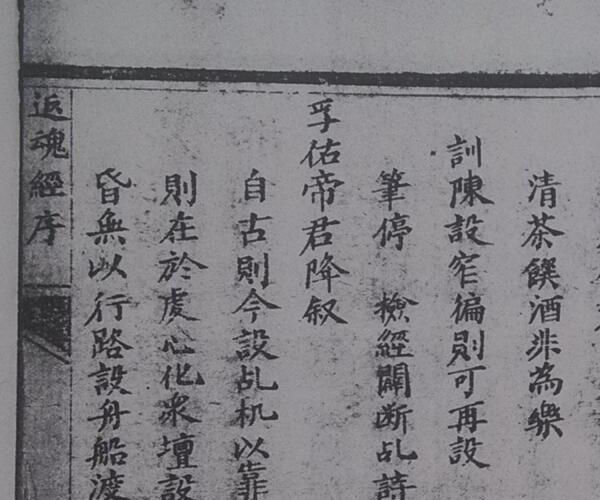 清茶饌酒非為樂
訓陳設窄徧則可再設
筆停 檢經闡断乩詩
孚佑帝君降叙
自古則今設乩机以靠
則在於虔心化衆壇設
昏無以行路設舟船渡
返魂經序